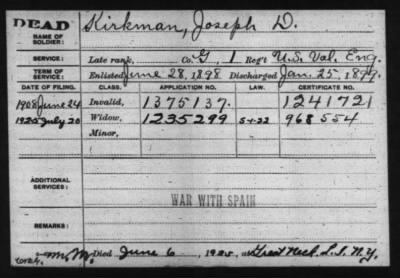 DEAD
NAME OF SOLDIER:
Kirkman, Joseph D.
SERVICE:
Late rank, Co. G, 1 Reg't U.S. Vol. Eng.
TERM OF SERVICE:
Enlisted June 28, 1898 Discharged Jan. 25, 1899.
DATE OF FILING. CLASS. APPLICATION NO. LAW. CERTIFICATE NO.
1908 June 24 Invalid, 1375137. 1241721
1925 July 20 Widow, 1235299 5-1-22 968554
Minor,
ADDITIONAL SERVICES:
WAR WITH SPAIN
REMARKS:
Died June 6, 1925, at Great Neck, L.I. N.Y.